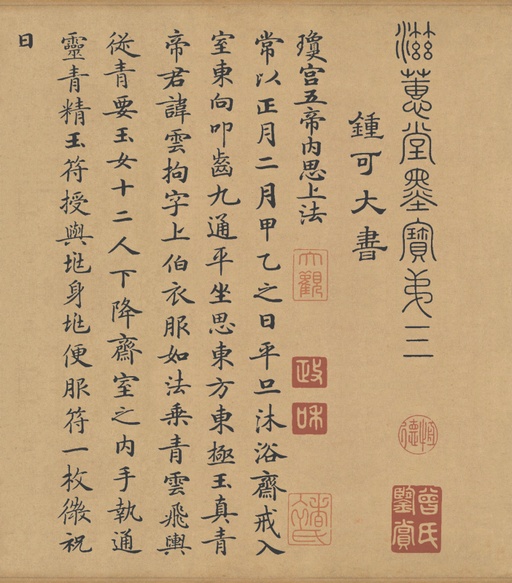 滋蕙堂墨寶弟三
恒德
曾氏鑒賞
鍾可大書
瓊宮五帝内思上法
大觀
政和
常以正月二月甲乙之日平旦沐浴齋戒入
室東向叩齒九通平坐思東方東極玉真青
帝君諱雲拘字上伯衣服如法乘青雲飛輿
從青要玉女十二人下降齋室之内手執通
靈青精玉符授與兆身兆便服符一枚微祝
曰